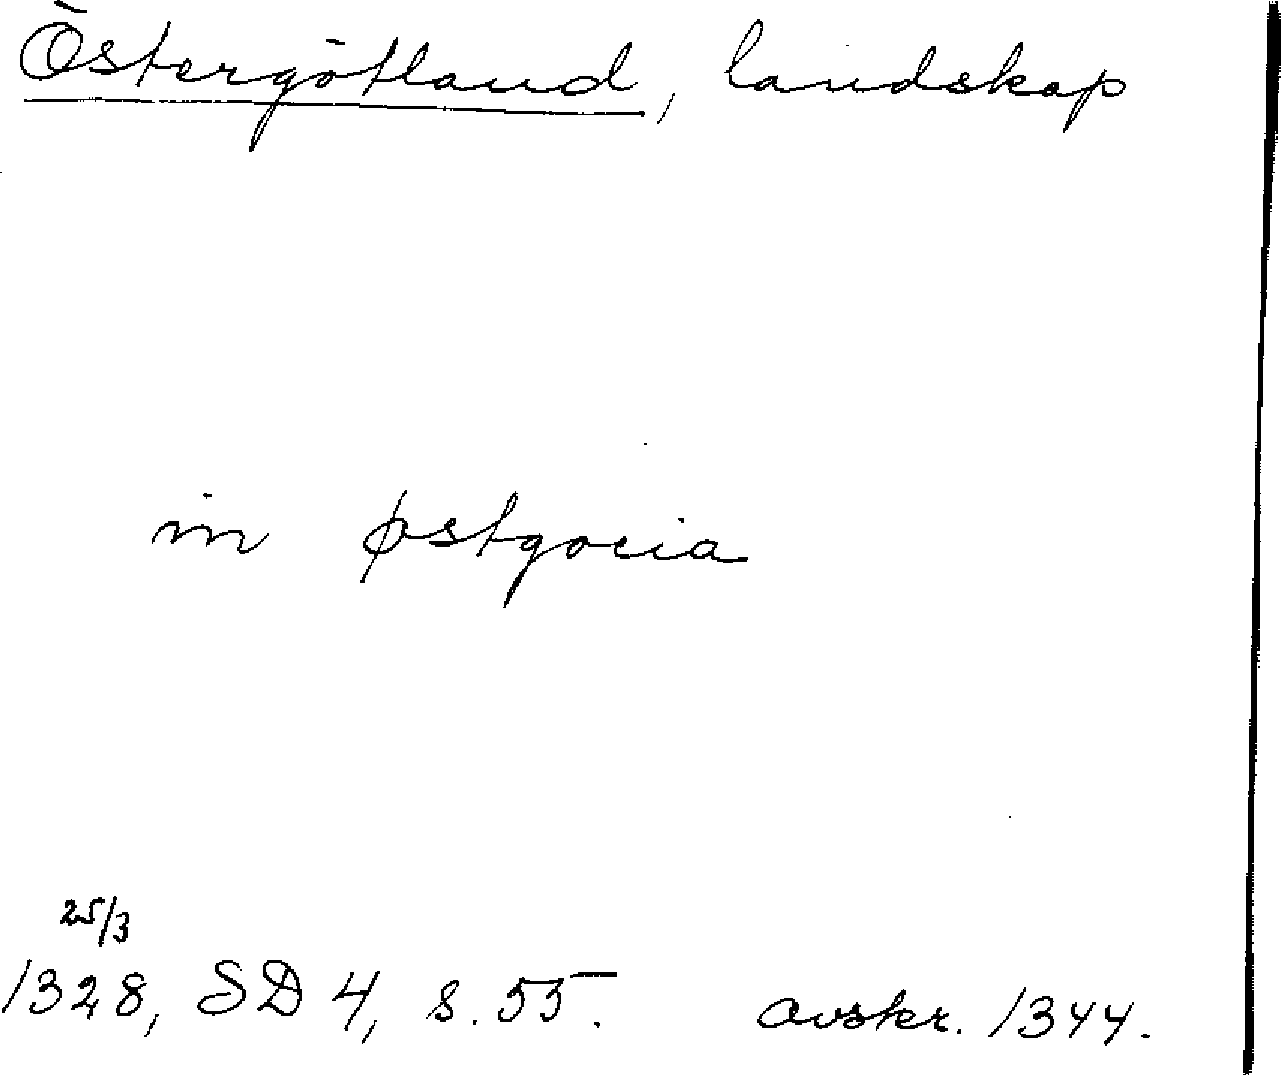 Östergötland, landskap
in østgocia
25/3
1328, SD 4, s. 55. avskr. 1344.